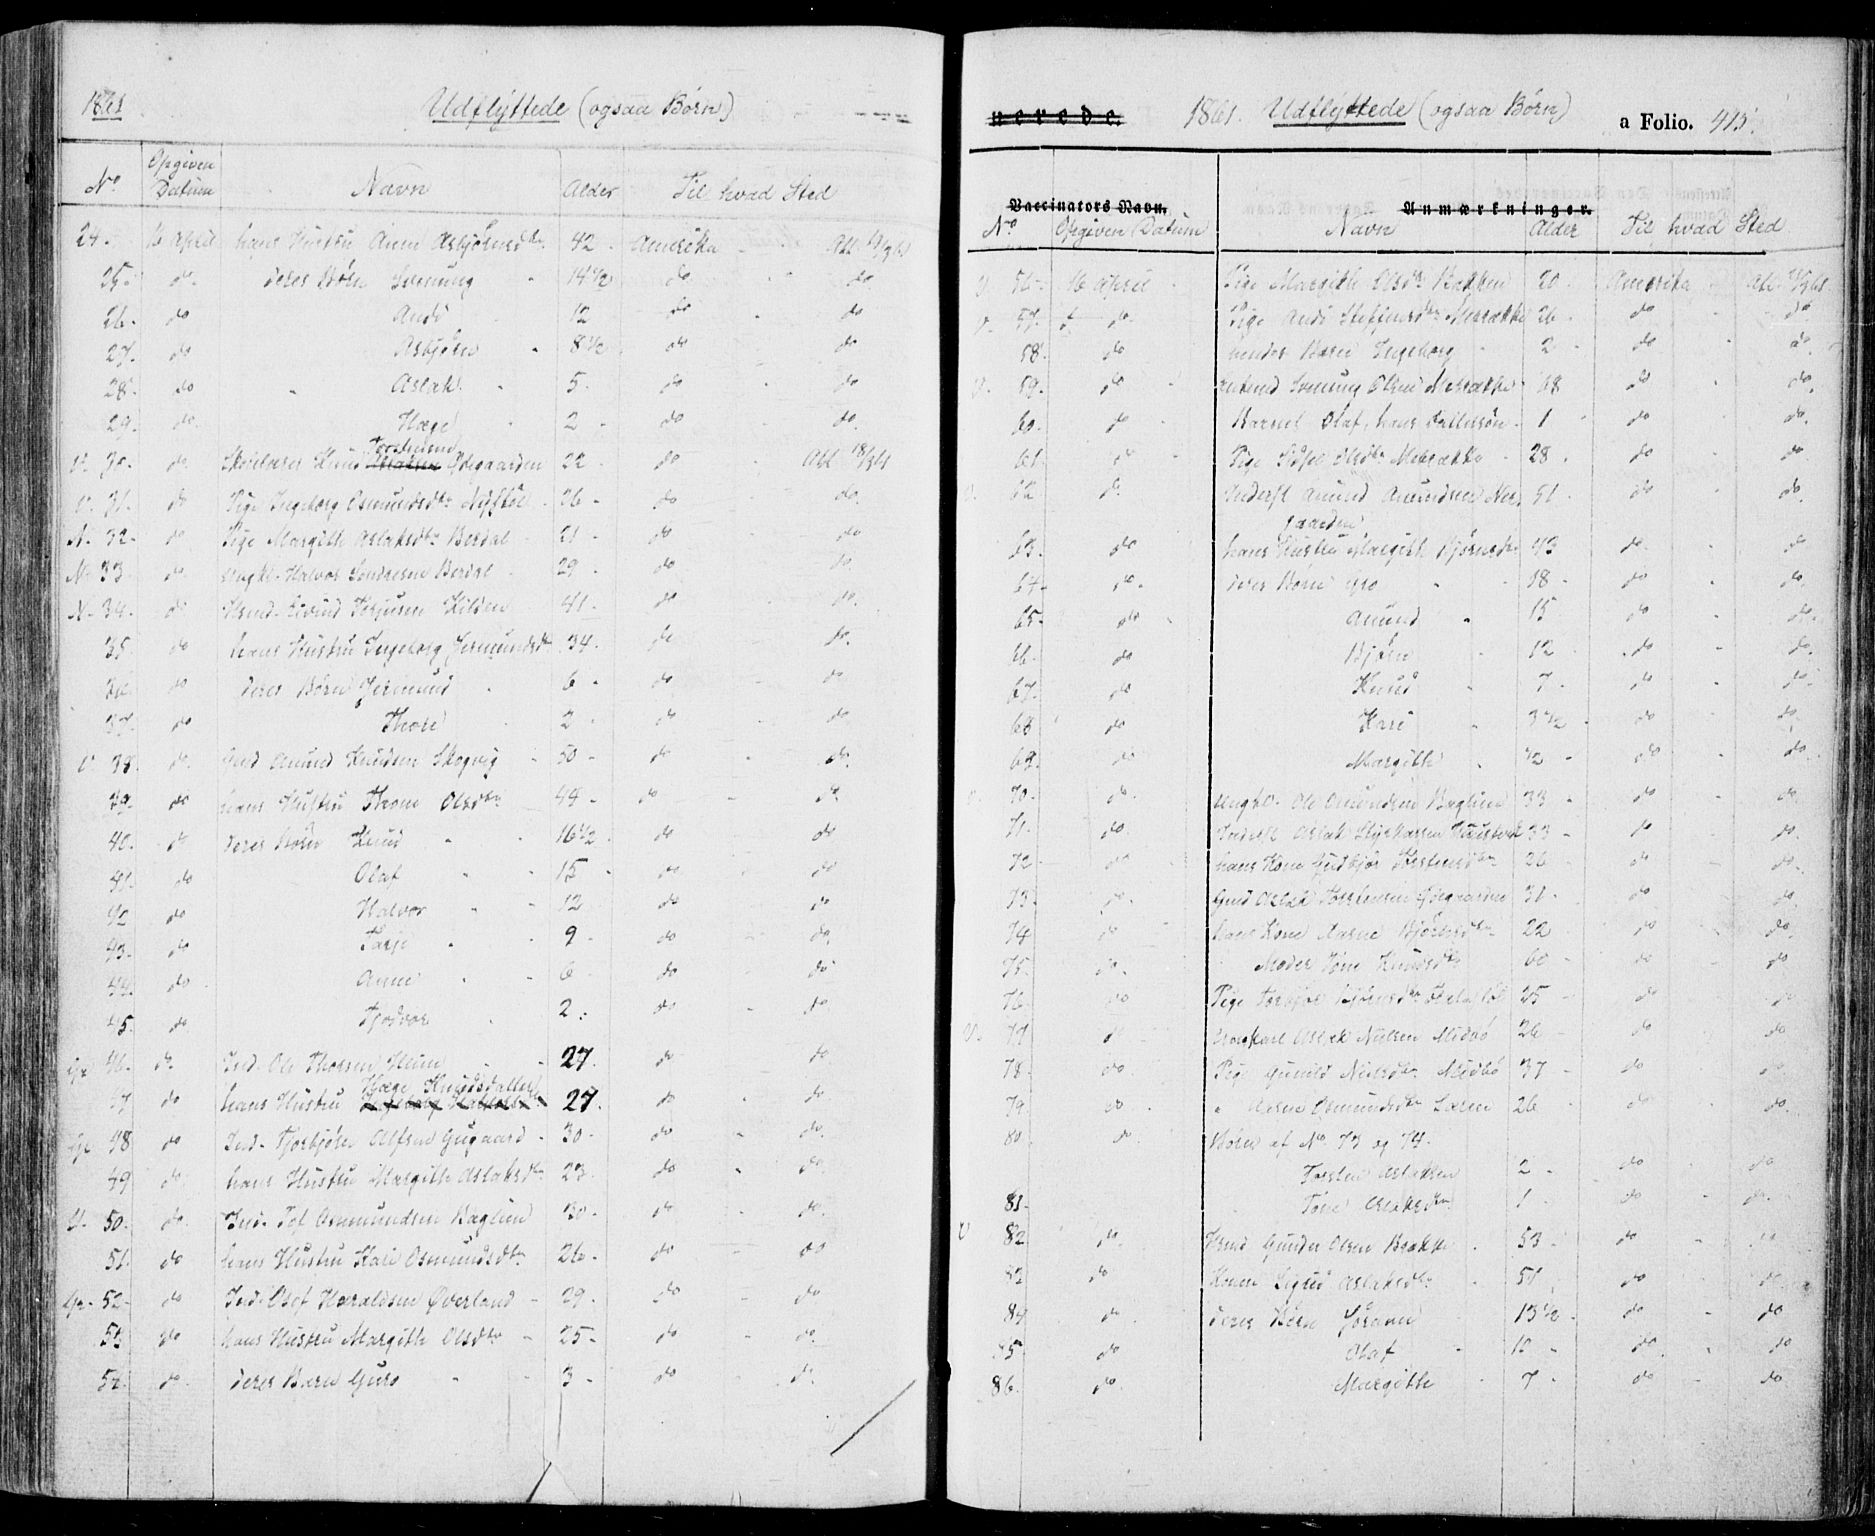 1861 Udflýttede (ogsaa Börn)
No Opgiven Datum Navn Alder Til hvad Sted
24. 16 April hans Hustru Anne Asbjörnsdtr 42 - Amerika
25. do deres Börn Svenung 14 1/2 do do
26. do Aasé 12 do do
27. do Asbjörn 8 1/2 do do
28. do Aslak 5 do do
29. do Hæge 2 - do do
Torstensen
30. do Skolelærer Knud Ödegaarden 22 - do
31. do Pige Ingeborg Osmundsdtr Nystöl 26 - do do
N. 32 - do Pige Margith Aslaksdtr Berdal 21 - do do
N. 33. do Ungk. Halvor Sondresen Berdal 29 - do do
N. 34. do Eivind Torjusen Kilden 41 - do do
35. do hans Hustru Ingeborg Jermundsdtr 34. do do
36. do deres Börn Jermund 6 - do do
37. do Thore 2 - do do
38. do Gmd Amund Knudsen Skogvig 50 - do do
39. do hans Hustru Thone Olsdtr 44 - do do
40. do deres Börn Knud 16 1/2 do do
41. do Olaf 15 do do
42 do Halvor 12 do do
43. do Tarje 9 - do do
44. do Anne 6 do do
45. do Tjodvor 2. do do
46. do Ind. Ole Thorsen 27. do do
Hæge Knudsdatter
47 do hans Hustru 27. do do
48 do Ind. Torbjörn Olfsen Gugaard 30 - do do
49 do hans Hustru Margith Aslaksdtr 23 - do do
50. do Ind. Tof Osmundsen Bæglien 30 - do do
51. do hans Hustru Kari Osmundsdtr 26 - do do
52 - do Ind. Olaf Haraldsen Överland - 29 - do do
53 do hans Hustru Margith Olsdtr 25 - do do
54. do deres Barn Guro 3 - do do
nerede. 1861. Udflýttede (ogsaa Börn) a Folio. 415.
Vaccinators Navn. Anmærkninger.
No Opgiven Datum Navn Alder Til hvad Sted
56 - 16 April Pige Margith Olsdtr Bakken 20 - Amerika
57. do Pige Aasé 26 - do do
58 do hendes Barn Ingeborg 2 - do do
59. do Svenung Olsen 68 do do
60. do Barnet Olaf, hans Dattersön 1 do do
61. do Pige Olsdtr 28. do do
62 do Inderst Amund Amundsen Ner- 51. do do
gaarden
63. do hans Hustru Margith Björnsdtr 43 do do
64. do deres Börn Gro 18 - do do
65 - do Amund 15 do do
66. do Björn 12 do do
67. do Knud 7 do do
68 do Kari 3 1/2 do do
69. do Margith 1/2 - do do
70. do Ungk. Ole Osmundsen Bæglien 33 do do
71. do Inderst Aslak 33 - do do
72 do hans Kone Gudbjör Torstensdtr 26 do do
73. do Gmd Aslak Torstensen Ödegaarden 31. do do
74 do hans Kone Aasne Björnsdtr 22 do do
75. do Moder Töne Knudsdtr 60 - do do
76. do Pige Torbjör Björnsdtr 25 do do
77 do Ungkarl Aslak Nilsen Midbö 26 - do do
78. do Pige Gunild Nilsdtr Midbö 37 - do do
79 do " Aasne Osmundsdtr 26 do do
80. do Börn af No 73 og 74.
Torsten Aslaksen 2 - do do
81 - Töne Aslaksdtr 1 - do do
82 do Gunder Olsen Brække 53 - do
83 do Konen Sigrid Aslaksdtr 51 do do
84 do deres Börn Jöran 13 1/2 - do do
85 do Olaf 10 - do do
86. do Margith 7 do do